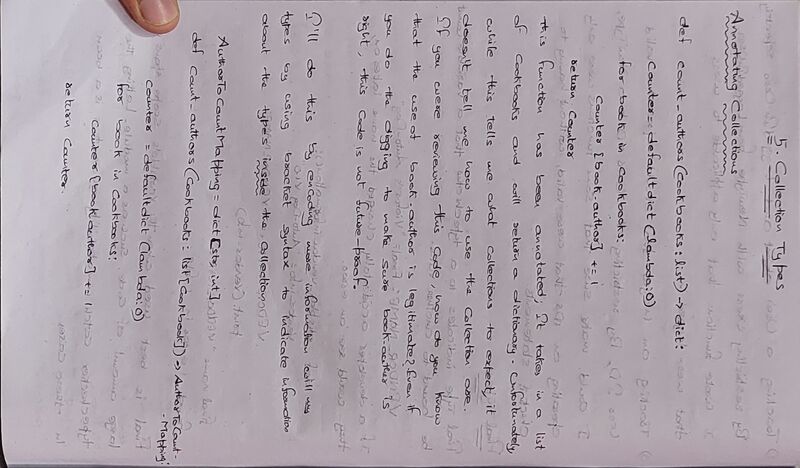 5. Collection Types
Annotating Collections
def count-authors (Cookbooks: list) → dict:
Counter = defaultdict (lambda:0)
for book in cookbooks:
Counter [book.author] += 1
return Counter
this function has been annotated, It takes in a list
of Cookbooks and will return a dictionary. Unfortunately
while this tells me what Collections to expect, it
doesn't tell me how to use the Collection are.
If you were reviewing this code, how do you know
that the use of book.author is legitimate? Even if
you do the digging to make sure book.author is
right, this code is not future-proof.
I'll do this by encoding more information with my
types by using bracket syntax to indicate information
about the types inside the Collection
AuthorToCountMapping = dict[str, int]
def Count-authors (Cookbooks: list[Cookbook]) → AuthorToCount-
-Mapping:
Counter = defaultdict (lambda:0)
for book in Cookbooks:
Counter[book.author] += 1
return Counter.